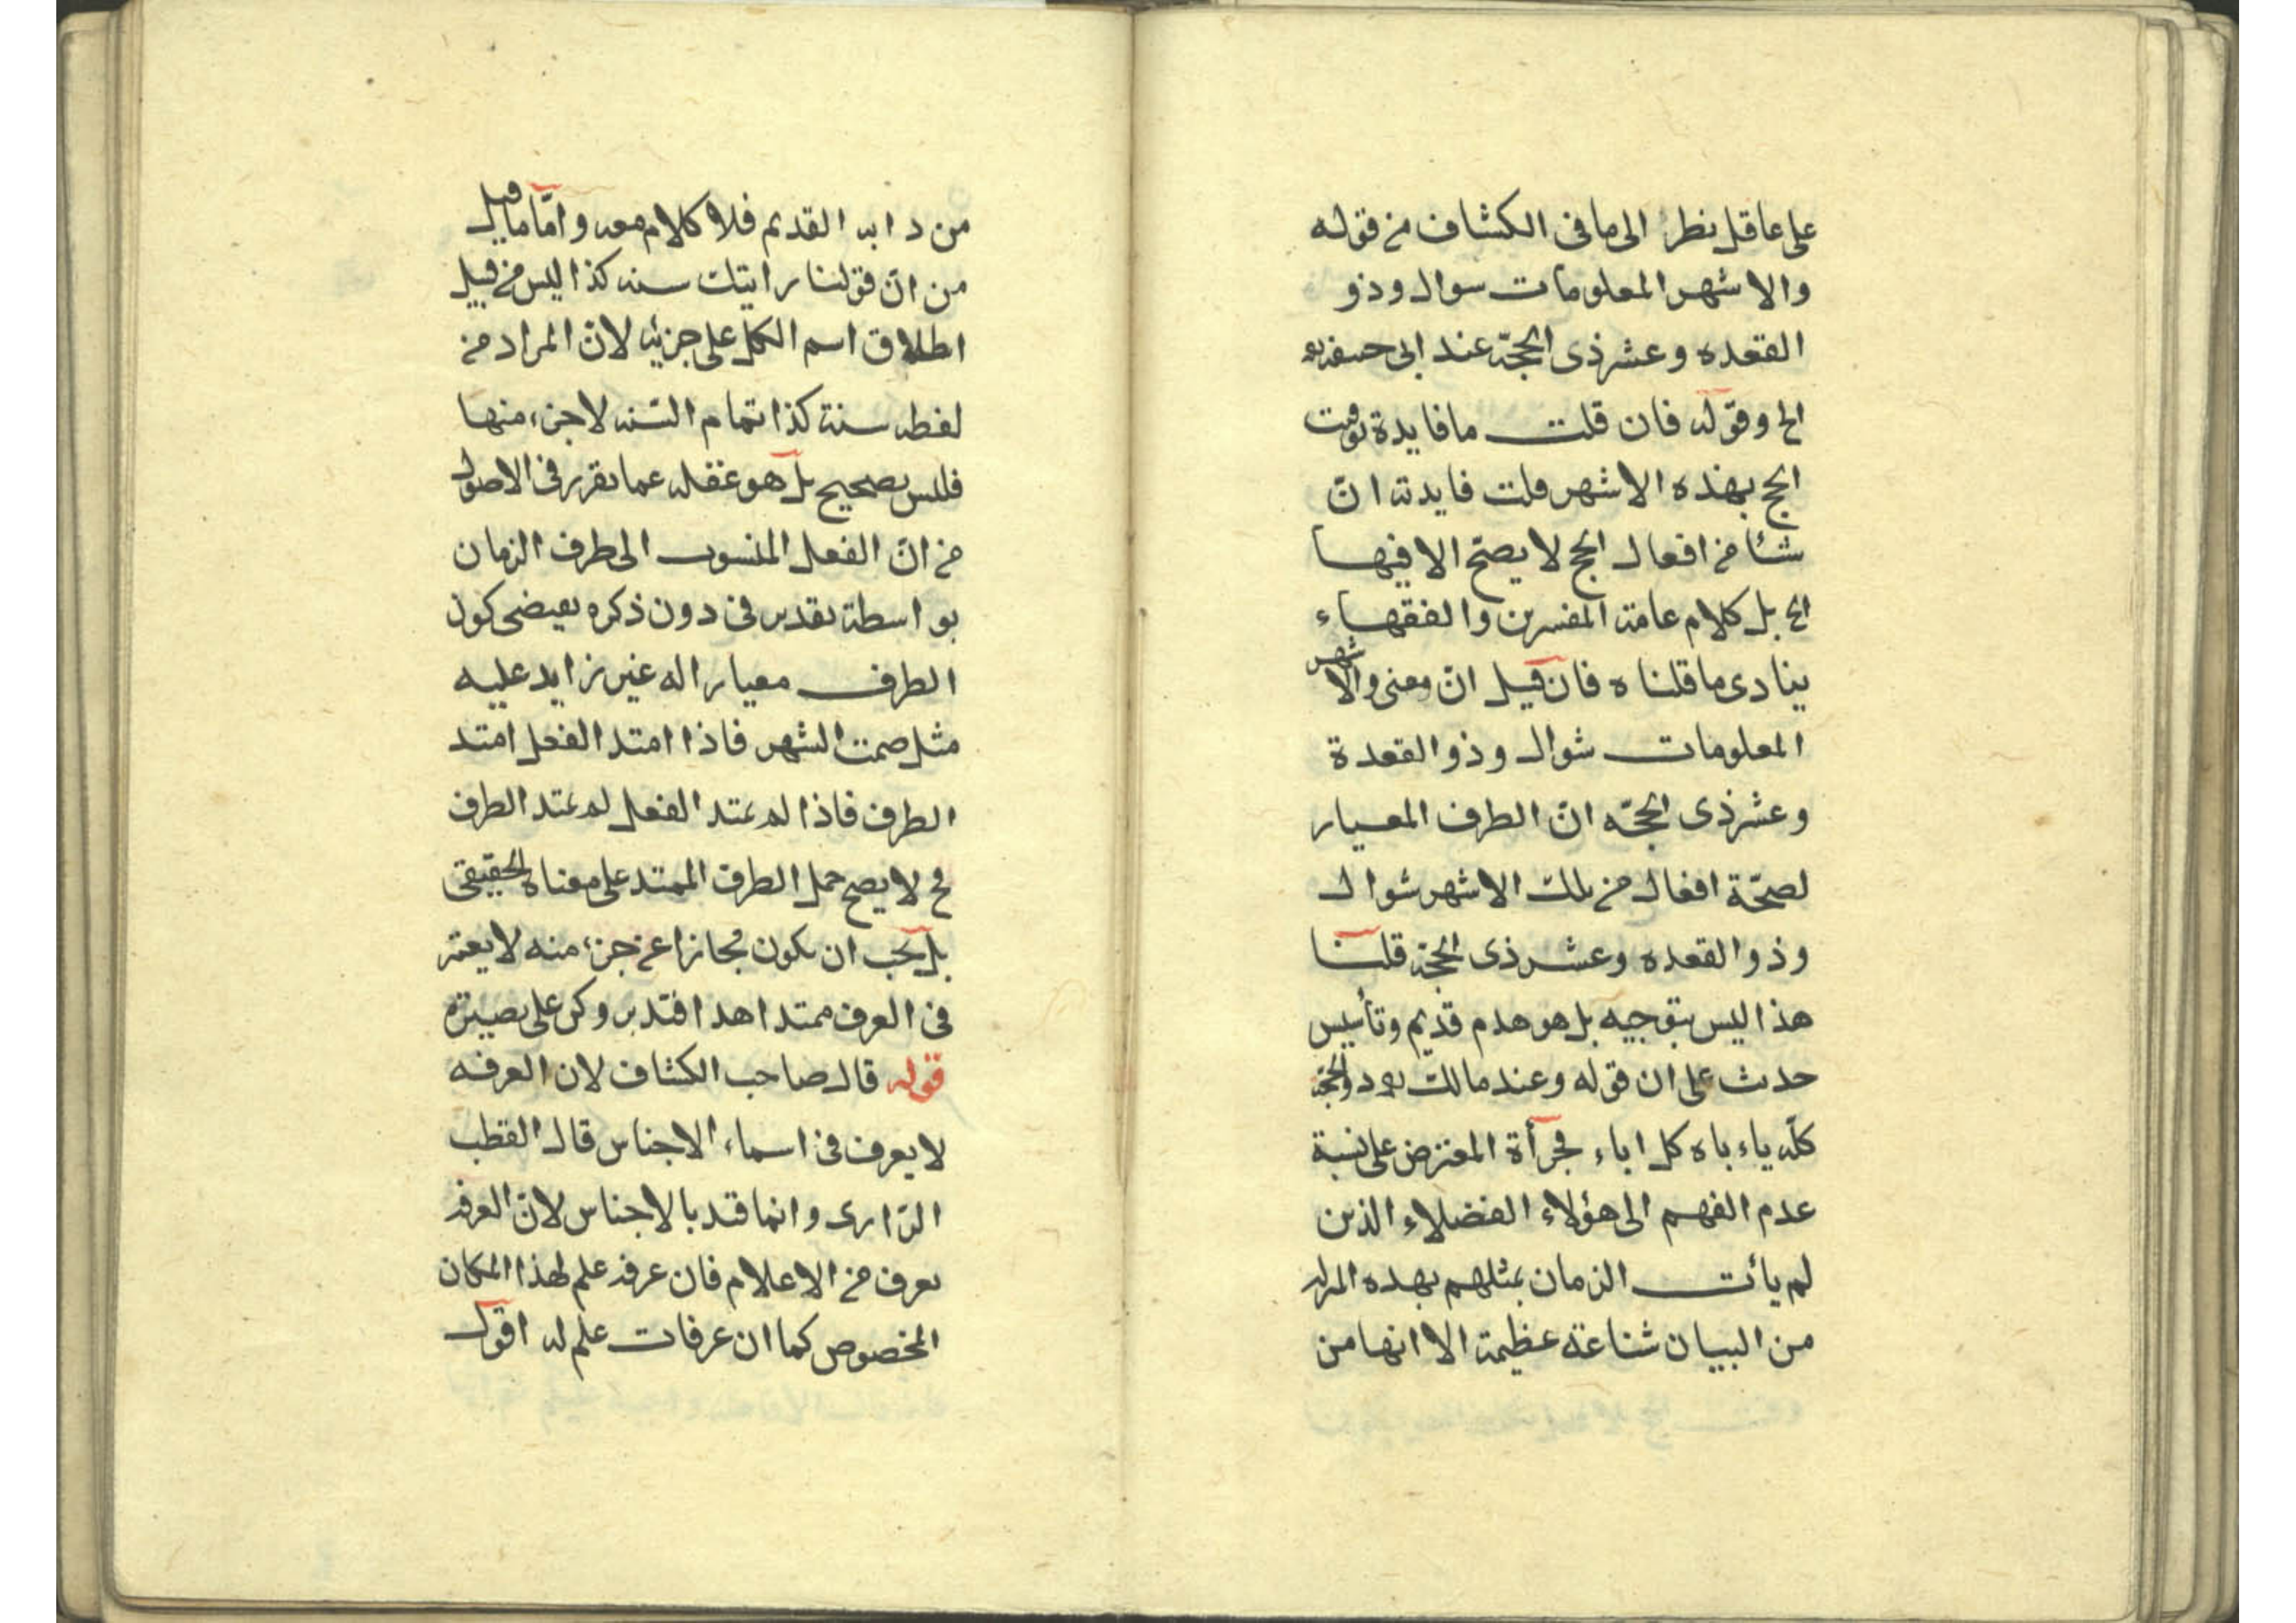 على عاقل نظر الى ما فى الكشاف من قوله
والاشهر المعلومات سوال وذو
القعده وعشر ذى الحجّة عند ابى حنيفة
الخ وقوله فان قلت ما فايدة توقيت
الحج بهذه الاشهر قلت فايدته انّ
شئا من افعال الحج لا يصحّ الا فيها
الخ بل كلام عامة المفسرين والفقهاء
ينادى ما قلناه فان قيل انّ معنى والاشهر
المعلومات شوال وذو القعدة
وعشر ذى الحجّه انّ الطرف المعيار
لصحّة افعال من تلك الاشهر شوال
وذو القعده وعشر ذى الحجّة قلنا
هذا ليس بتوجيه بل هو هدم قديم وتأسيس
حدث على ان قوله وعند مالك ذو الحجة
كلّه ياءباه كل اباء فجرأة المعترض على نسبة
عدم الفهم الى هؤلاء الفضلاء الذين
لم يأت الزمان بمثلهم بهذه المرتبة
من البيان شناعة عظيمة الا انها من
من دابه القديم فلا كلام معه وامّا ما قيل
من انّ قولنا رايتك سنه كذا ليس من قبيل
اطلاق اسم الكل على جزئه لانّ المراد من
لفظه سنة كذا تمام السّنه لا جزء منها
فليس بصحيح بل هو غفله عما تقرر فى الاصول
من انّ الفعل المنسوب الى طرف الزمان
بواسطة تقدير فى دون ذكره يقيضى كون
الطرف معيارا له غير زايد عليه
مثل صمت الشهر فاذا امتد الفعل امتد
الطرف فاذا لم يمتد الفعل لم يمتد الطرف
فح لا يصح حمل الطرف الممتد على معناه الحقيقى
بل يجب ان يكون مجازا عن جزء منه لا يعتبر
فى العرف ممتدا هذا فتدبر وكن على بصيرة
قوله قال صاحب الكشاف لان العرفه
لا يعرف فى اسماء الاجناس قال القطب
الرّازى وانما قيد بالاجناس لانّ العرفه
يعرف من الاعلام فان عرفه علم لهذا المكان
المخصوص كما ان عرفات علم له اقول